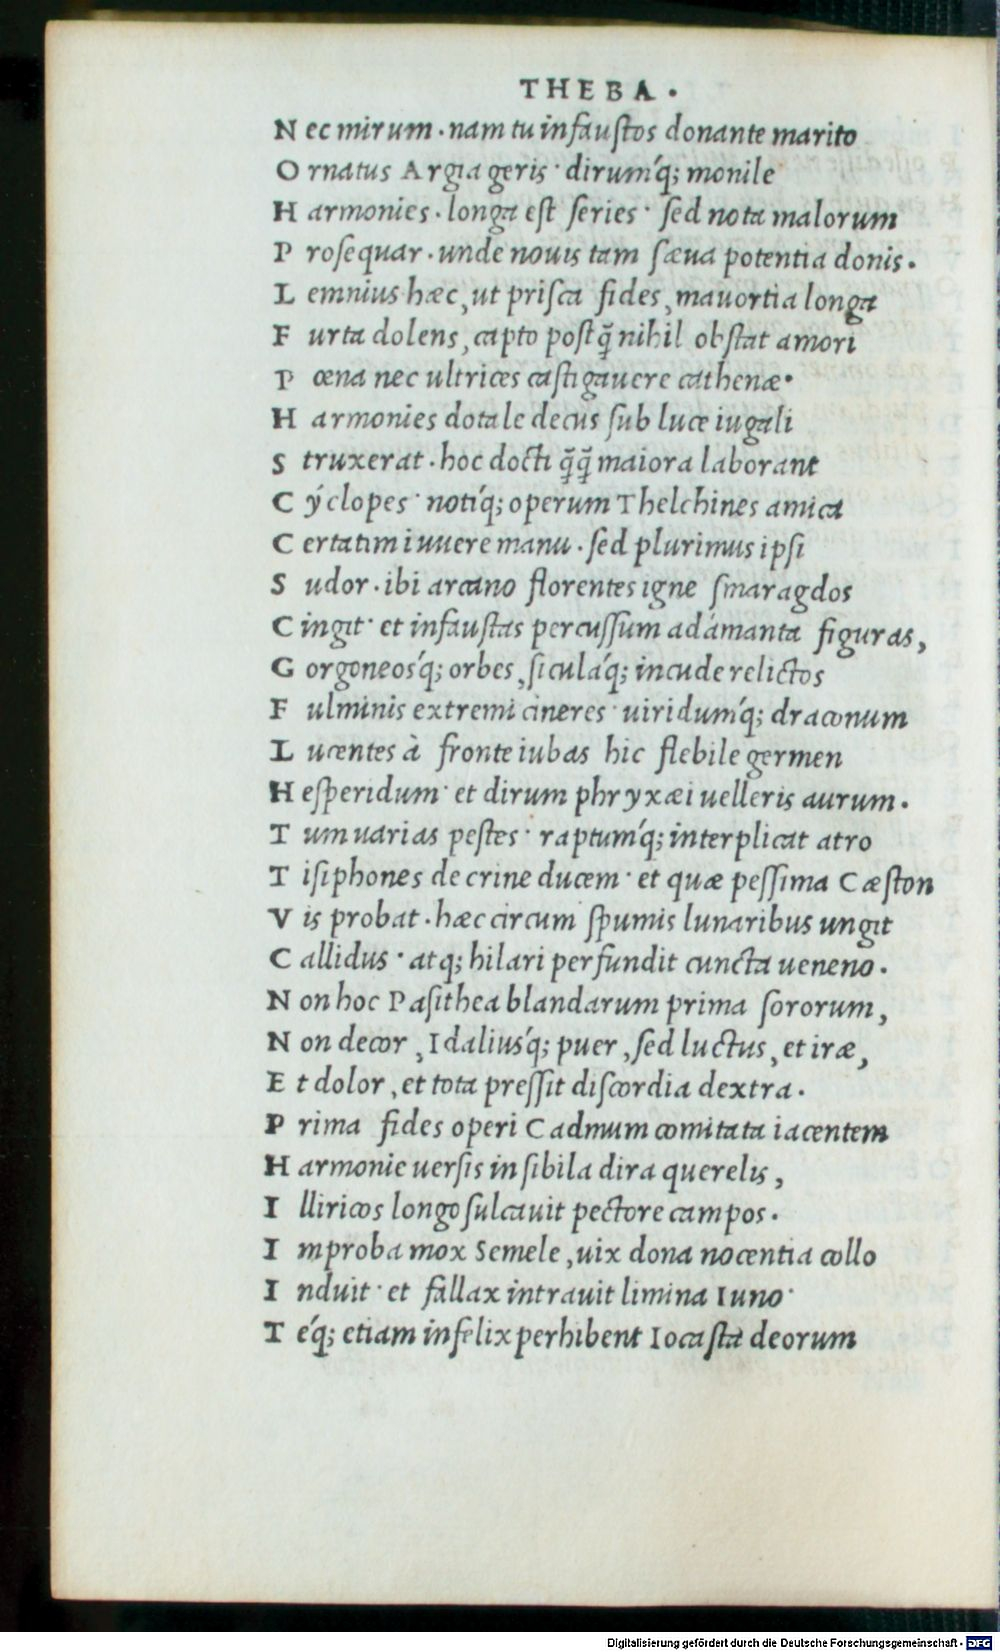 THEBA.
Nec mirum. nam tu infaustos donante marito
Ornatus Argia geris· dirum'q; monile
Harmonies. longa est series· sed nota malorum
Prosequar. unde nouis tam sæua potentia donis.
Lemnius hæc, ut prisca fides, mauortia longa
Furta dolens, capto postq̃ nihil obstat amori
Pœna nec ultrices castigauere cathenæ·
Harmonies dotale decus sub luce iugali
Struxerat. hoc docti q̃q̃ maiora laborant
Cýclopes· noti'q; operum Thelchines amica
Certatim iuuere manu. sed plurimus ipsi
Sudor. ibi arcano florentes igne smaragdos
Cingit· et infaustas percussum adámanta figuras,
Gorgoneos'q; orbes, sicula'q; incude relictos
Fulminis extremi cineres· uiridum'q; draconum
Lucentes à fronte iubas hic flebile germen
Hesperidum· et dirum phryxæi uelleris aurum.
Tum uarias pestes· raptum'q; interplicat atro
Tisiphones de crine ducem· et quæ pessima Cæston
Vis probat. hæc circum spumis lunaribus ungit
Callidus· atq; hilari perfundit cuncta ueneno.
Non hoc Pasithea blandarum prima sororum,
Non decor, Idalius'q; puer, sed luctus, et iræ,
Et dolor, et tota pressit discordia dextra.
Prima fides operi Cadmum comitata iacentem
Harmonie uersis in sibila dira querelis,
Illiricos longo sulcauit pectore campos.
Improba mox Semele, uix dona nocentia collo
Induit· et fallax intrauit limina Iuno·
Te'q; etiam infelix perhibent Iocasta deorum
Digitalisierung gefördert durch die Deutsche Forschungsgemeinschaft - DFG